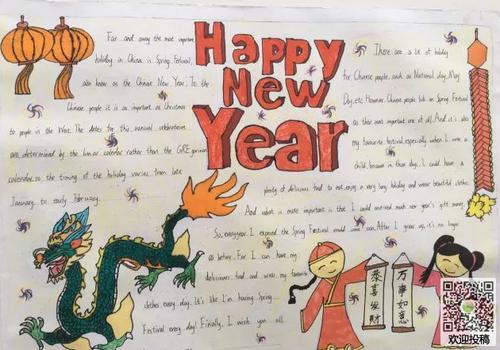 Happy
New
Year
Far and away the most important
holiday in China is Spring Festival,
also know as the Chinese New Year. To the
Chinese people it is as important as Christmas
to people in the West. The dates for this annual celebration
are determined by the lunar calendar rather than the
calendar, so the timing of the holiday varies from late
January to early February.
There are a lot of holiday
for Chinese people, such as National day, May
Day, etc. However, Chinese people look on Spring Festival
as their most important one of all. And it's also
my favourite festival, especially when I were a
child, because in those days, I could have a
plenty of delicious food to eat, enjoy a very long holiday and wear beautiful clothes.
And what is more important is that I could received much new year's gift money.
So, every year I expected the Spring Festival would come soon. After I grew up, it's no longer
so better. For I can have my
delicious food and wear my favourite
clothes every day. It's like I'm having Spring
Festival every day. Finally, I wish you all
恭喜發財
万事如意
欢迎投稿